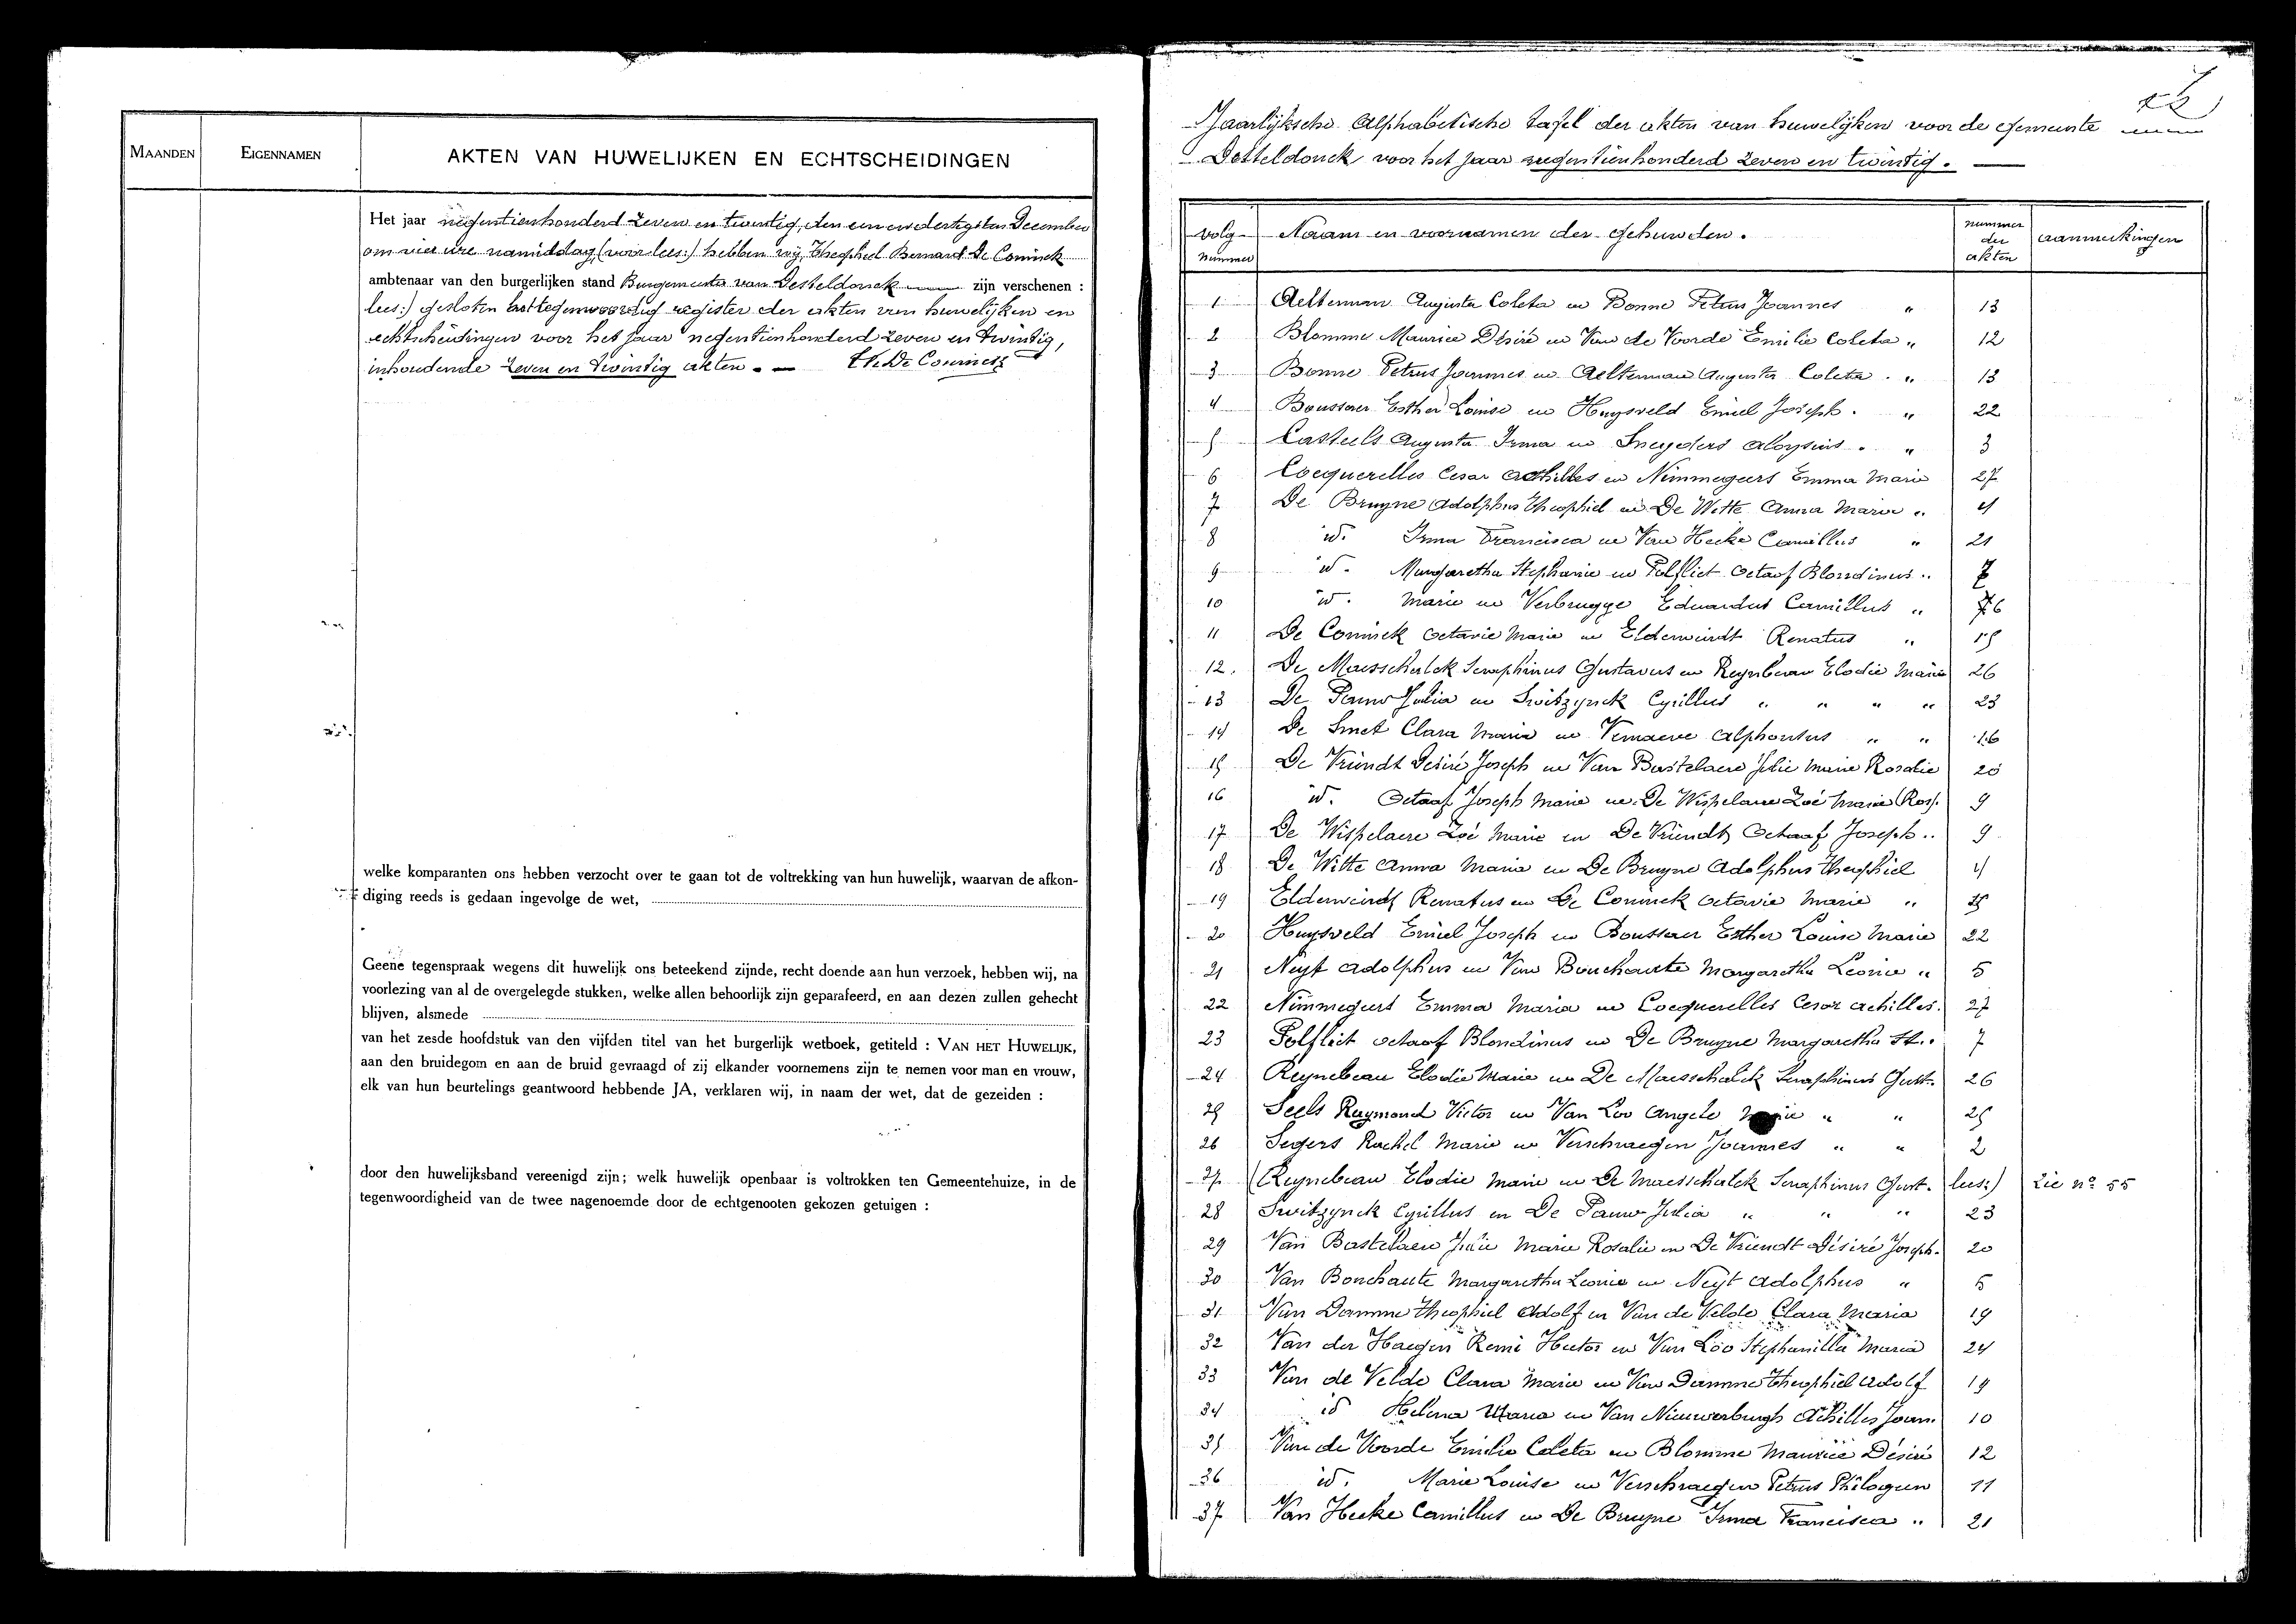 MAANDEN
EIGENNAMEN
AKTEN VAN HUWELIJKEN EN ECHTSCHEIDINGEN
Het jaar negentienhonderd zeven en twintig, den een en dertigsten December
om vier ure namiddag, (voor lees:) hebben wij, Theophiel Bernard De Coninck
ambtenaar van den burgerlijken stand Burgemeester van Desteldonck zijn verschenen :
lees:) gesloten het tegenwoordig register der akten van huwelijken en
echtscheidingen voor het jaar negentienhonderd zeven en twintig,
inhoudende zeven en twintig akten. — Th. De Coninck
welke komparanten ons hebben verzocht over te gaan tot de voltrekking van hun huwelijk, waarvan de afkon-
diging reeds is gedaan ingevolge de wet,
Geene tegenspraak wegens dit huwelijk ons beteekend zijnde, recht doende aan hun verzoek, hebben wij, na
voorlezing van al de overgelegde stukken, welke allen behoorlijk zijn geparafeerd, en aan dezen zullen gehecht
blijven, alsmede
van het zesde hoofdstuk van den vijfden titel van het burgerlijk wetboek, getiteld : VAN HET HUWELIJK,
aan den bruidegom en aan de bruid gevraagd of zij elkander voornemens zijn te nemen voor man en vrouw,
elk van hun beurtelings geantwoord hebbende JA, verklaren wij, in naam der wet, dat de gezeiden :
door den huwelijksband vereenigd zijn; welk huwelijk openbaar is voltrokken ten Gemeentehuize, in de
tegenwoordigheid van de twee nagenoemde door de echtgenooten gekozen getuigen :
Jaarlijksche Alphabetische tafel der akten van huwelijken voor de gemeente
Desteldonck voor het jaar negentienhonderd zeven en twintig. —
volg nummer Naam en voornamen der gehuwden. nummer der akten aanmerkingen
1 Aelterman Augusta Coleta en Bonne Petrus Joannes " 13
2 Blomme Maurice Désiré en Van de Voorde Emilie Coleta " 12
3 Bonne Petrus Joannes en Aelterman Augusta Coleta . " 13
4 Boussaer Esther Louise en Huysveld Emiel Joseph . " 22
5 Casteels Augusta Irma en Sneyders Aloysius . " 3
6 Cocquerelles Cesar Achilles en Nimmegeers Emma Maria 27
7 De Bruyne Adolphus Theophiel en De Witte Anna Maria " 4
8 id. Irma Francisca en Van Hecke Camillus " 21
9 id. Margaretha Stephanie en Polfliet Octaaf Blondinus " 7
10 id. Marie en Verbrugge Eduardus Camillus " 6
11 De Coninck Octavie Marie en Elderweirdt Renatus " 15
12. De Maesschalck Seraphinus Gustavus en Reynbeau Elodie Marie 26
13 De Pauw Julia en Switzynck Cyrillus " " " " 23
14 De Smet Clara Maria en Vernaeve Alphonsus " " 16
15 De Vriendt Désiré Joseph en Van Bastelaere Julie Marie Rosalie 20
16 id. Octaaf Joseph Marie en De Wispelaere Zoé Marie Ros. 9
17 De Wispelaere Zoé Marie en De Vriendt Octaaf Joseph .. 9
18 De Witte Anna Maria en De Bruyne Adolphus Theophiel 4
19 Elderweirdt Renatus en De Coninck Octavie Marie " 15
20 Huysveld Emiel Joseph en Boussaer Esther Louise Marie 22
21 Neyt Adolphus en Van Bouchaute Margaretha Leonie " 5
22 Nimmegeers Emma Maria en Cocquerelles Cesar Achilles. 27
23 Polfliet Octaaf Blondinus en De Bruyne Margaretha St.. 7
24 Reynebeau Elodie Marie en De Maesschalck Seraphinus Gust. 26
25 Seels Raymond Victor en Van Loo Angele Marie " " 25
26 Segers Rachel Marie en Verschraegen Joannes " " 2
27 (Reynebeau Elodie Marie en De Maesschalck Seraphinus Gust. lees:) Zie n° 55
28 Switzynck Cyrillus en De Pauw Julia " " " 23
29 Van Bastelaere Julie Marie Rosalie en De Vriendt Désiré Joseph. 20
30 Van Bouchaute Margaretha Leonie en Neyt Adolphus " 5
31 Van Damme Theophiel Adolf en Van de Velde Clara Maria 19
32 Van der Haegen Remi Hector en Van Loo Stephanilla Maria 24
33 Van de Velde Clara Maria en Van Damme Theophiel Adolf 19
34 id Helena Maria en Van Nieuwerburgh Achilles Joan. 10
35 Van de Voorde Emilie Coleta en Blomme Maurice Désiré 12
36 id. Marie Louise en Verschraegen Petrus Philogeen 11
37 Van Hecke Camillus en De Bruyne Irma Francisca " 21